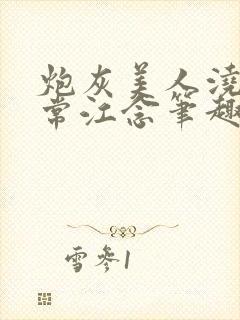 炮灰美人浇
常江念笔趣
雪参1